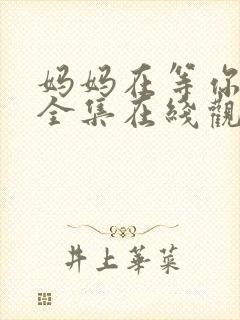 妈妈在等你
全集在綫觀
井上華菜